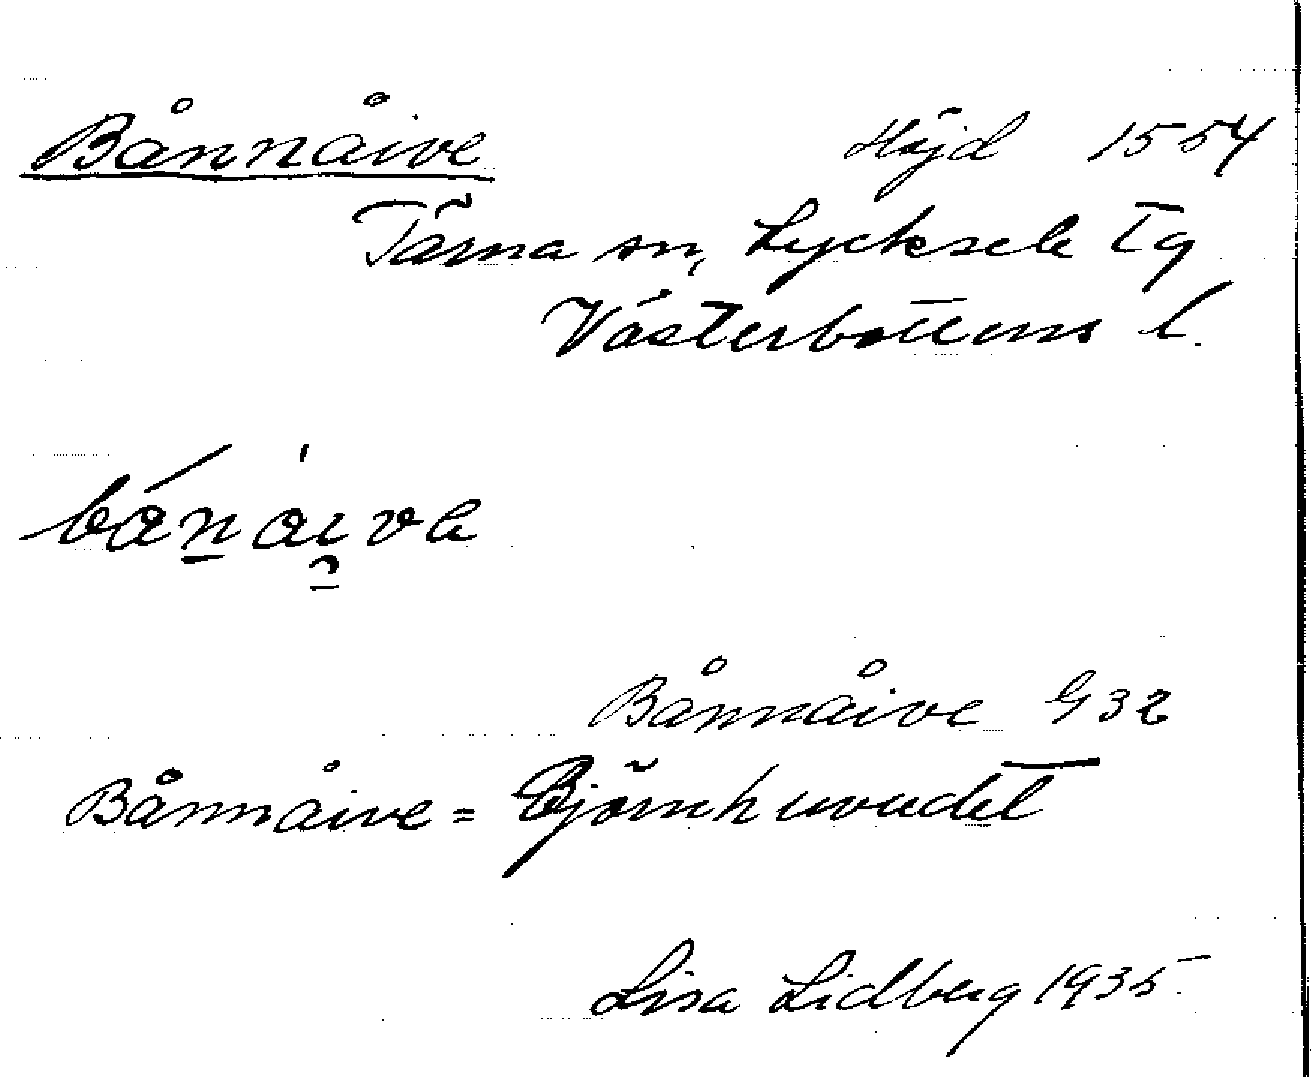 Bånnåive Höjd 1554
Tärna sn, Lycksele Lg
Västerbottens l.
Bånnåive G32
Bånnåive = Björnhuvudet
Lisa Lidberg 1935